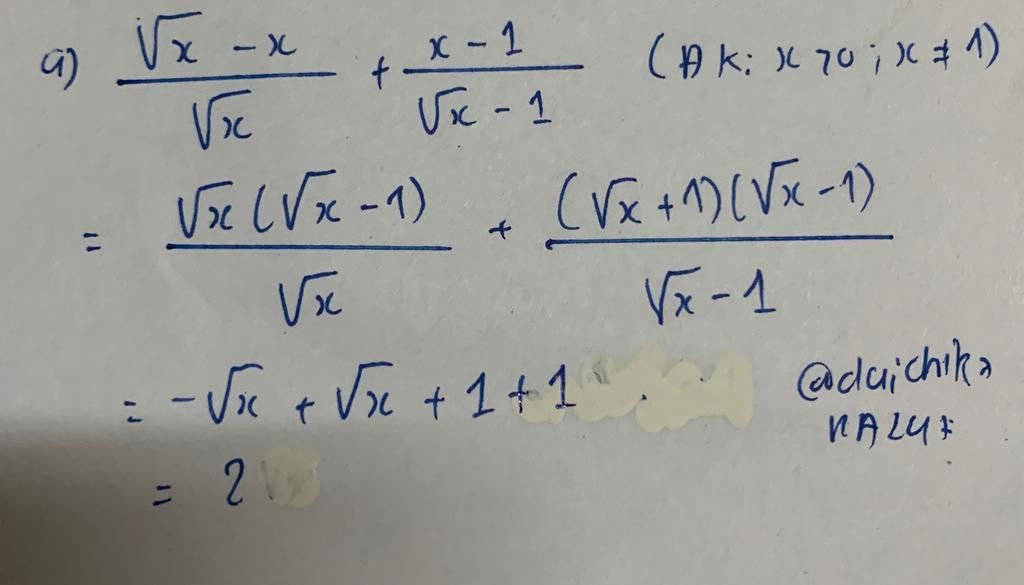 a) (√x - x)/√x + (x - 1)/(√x - 1) (ĐK: x > 0; x ≠ 1)
= √x(√x - 1)/√x + (√x + 1)(√x - 1)/(√x - 1)
= -√x + √x + 1 + 1
= 2
@daichika